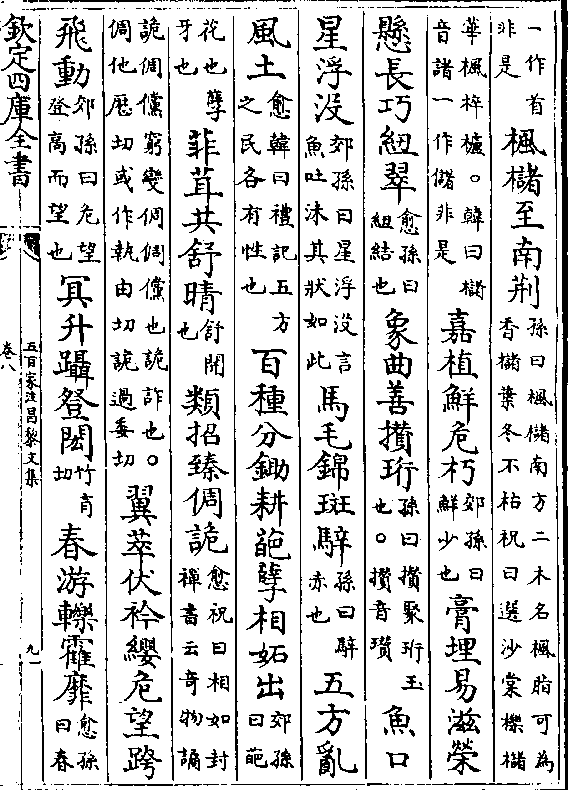 一作首非是楓櫧至南荆孫曰楓櫧南方二木名楓脂可為香櫧葉冬不枯祝曰選沙棠櫟櫧
華楓枰櫨。韓曰櫧音諸一作儲非是嘉植鮮危朽郊孫曰鮮少也膏埋易滋榮
懸長巧紐翠愈孫曰紐結也象曲善攢珩孫曰攢聚珩玉也。攢音瓚魚口
星浮没郊孫曰星浮没言魚吐沫其狀如此馬毛錦斑騂孫曰騂赤也五方亂
風土愈韓曰禮記五方之民各有性也百種分鋤耕葩孽相妬出郊孫曰葩
花也孽牙也菲茸共舒晴舒開也類招臻倜詭愈祝曰相如封禪書云奇物譎
詭倜儻窮變倜倜儻也詭詐也。倜他厯切或作執由切詭過委切翼萃伏衿纓危望跨
飛動郊孫曰危望登高而望也冥升躡登閎竹育切春游轢靃靡愈孫曰春
欽定四庫全書
五百家注昌黎文集
卷八
九